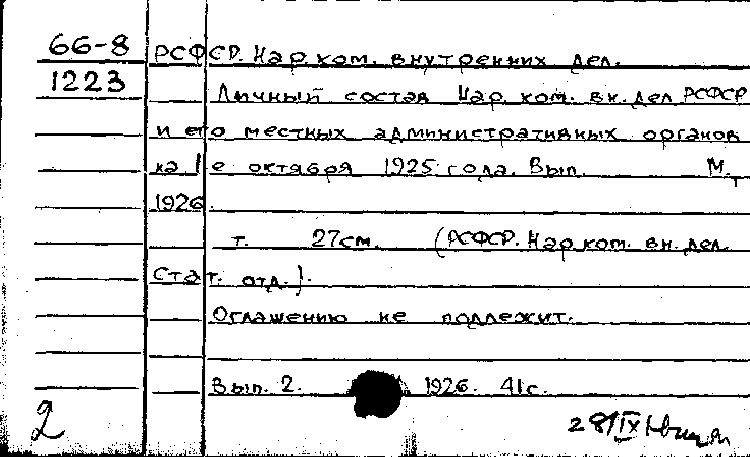 66-8 РСФСР. Нар. ком. внутренних дел.
1223 Личный состав Нар. ком. вн. дел РСФСР
и его местных административных органов
на 1е октября 1925 года. Вып. М.,
1926.
т. 27см. (РСФСР. Нар. ком. вн. дел.
Стат. отд.).
Оглашению не подлежит.
Вып. 2. 1926. 41с.
2 28/IX